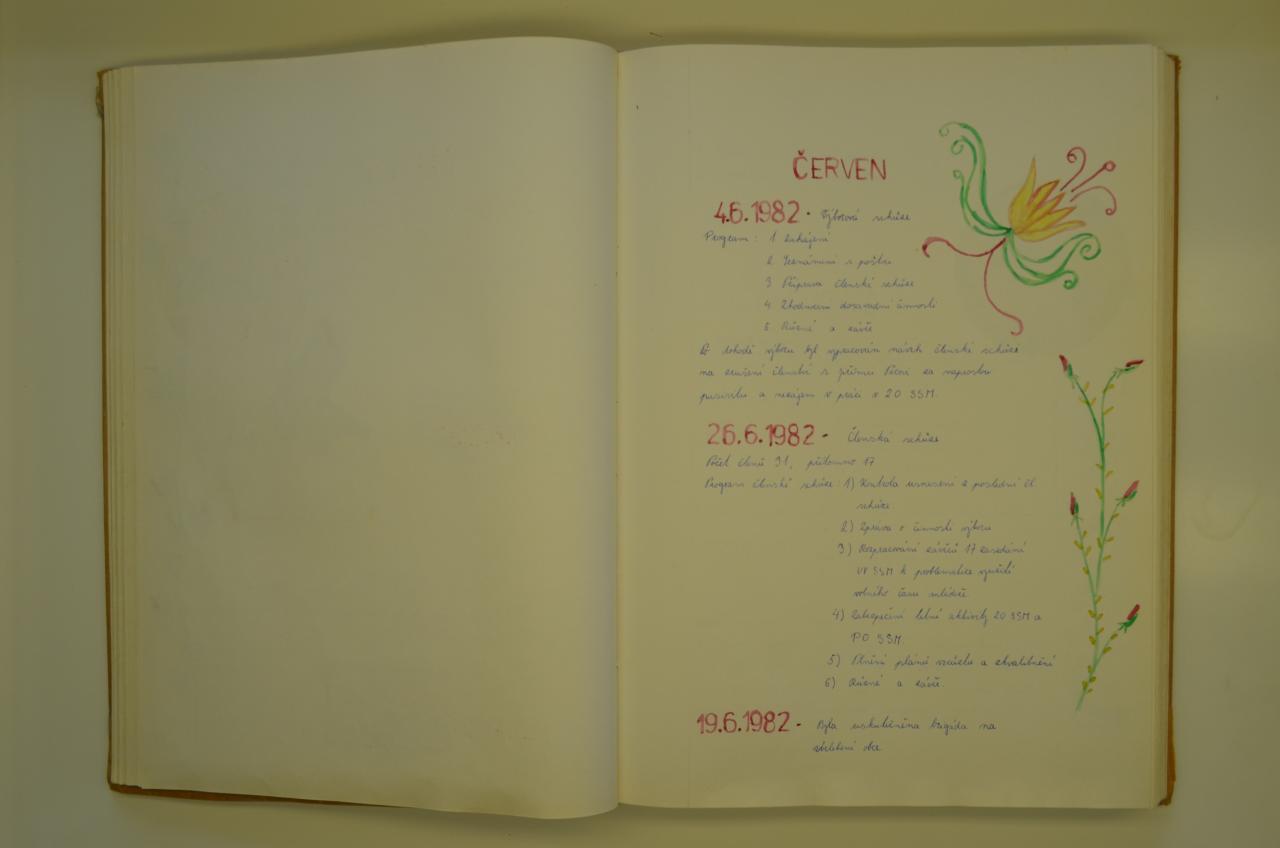 ČERVEN
4.6.1982 - Výborová schůze
Program: 1. Zahájení
2. Seznámení s poštou
3. Příprava členské schůze
4. Zhodnocení dosavadní činnosti
5. Různé a závěr
Po dohodě výboru byl vypracován návrh členské schůze
na zrušení členství s přímou za naprostou
pasivitu a nezájem v práci v ZO SSM.
26.6.1982 - Členská schůze
Počet členů 31, přítomno 17
Program členské schůze: 1) Kontrola usnesení z poslední čl.
schůze.
2) Zpráva o činnosti výboru
3) Rozpracování závěrů 17 zasedání
ÚV SSM k problematice využití
volného času mládeže
4) Zabezpečení letní aktivity ZO SSM a
PO SSM.
5) Plnění plánů vzniklu a zkvalitnění
6) Různé a závěr.
19.6.1982 - Byla uskutečněna brigáda na
zvelebení obce.